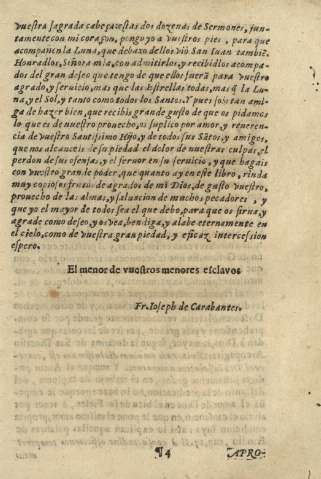 vuestra sagrada cabeça estas dos dozenas de Sermones, jun-
tamente con mi coraçon, pongo yo a vuestros pies, para que
acompañen la Luna, que debaxo dellos viò San Iuan tambiẽ.
Honradlos, Señora mia, con admitirlos, y recibidlos acompa-
dos del gran deseo que tengo de que ellos fuerã para vuestro
agrado, y servicio, mas que las Estrellas todas, mas q̃ la Lu-
na, y el Sol, y tanto como todos los Santos. Y pues sois tan ami-
ga de hazer bien, que recibis grande gusto de que os pidamos
lo que es de nuestro provecho, os suplico por amor, y reveren-
cia de vuestro Santissimo Hijo, y de todos sus Sãtos, y amigos,
que nos alcanceis de su piedad el dolor de nuestras culpas, el
perdon de sus ofensas, y el fervor en su servicio, y que hagais
con vuestro grande poder, que quanto ay en este libro, rinda
muy copiosos frutos de agrados de mi Dios, de gusto vuestro,
provecho de las almas, y salvacion de muchos pecadores, y
que yo el mayor de todos sea el que debo, para que os sirva, y
agrade como deseo, y os vea, bendiga, y alabe eternamente en
el cielo, como de vuestra gran piedad, y eficaz intercession
espero.
El menor de vuestros menores esclavos
Fr. Ioseph de Carabantes.
¶4 APRO-